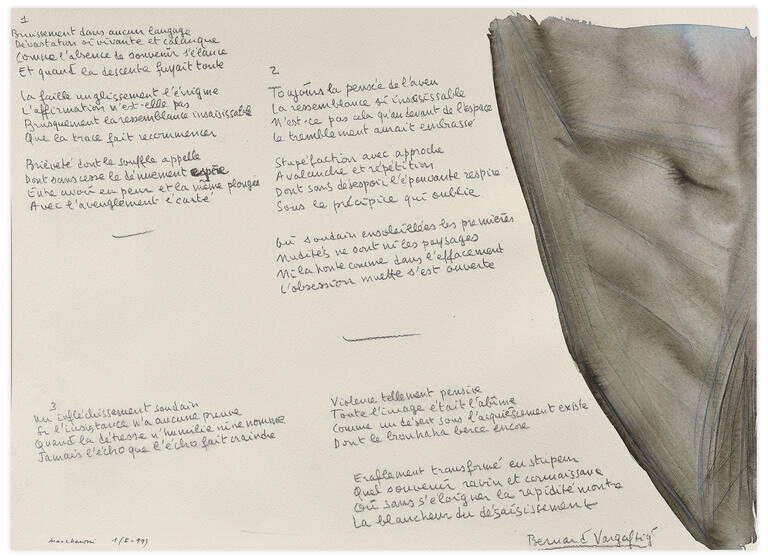 1
Bruissement dans aucun langage
Dévastation si vivante et calanque
Comme l'absence de souvenir s'élance
Et quand la descente fuyait toute
La faille un glissement l'énigme
L'affirmation n'est-elle pas
Brusquement la ressemblance insaisissable
Que la trace fait recommencer
Brièveté dont le souffle appelle
Dont sans cesse le dénuement espère
Entre avoir eu peur et la même plongée
Avec l'aveuglement écarté
2
Toujours la pensée de l'aveu
La ressemblance si insaisissable
N'est-ce pas cela qu'au devant de l'espace
Le tremblement aurait embrassé
Stupéfaction avec approche
Avalanche et répétition
Dont sans désespoir l'épouvante respire
Sous le précipice qui oublie
Où soudain ensoleillées les premières
Nudités ne sont ni les paysages
Ni la honte comme dans l'effacement
L'obsession muette s'est ouverte
3
Un infléchissement soudain
Si l'insistance n'a aucune preuve
Quand la détresse n'humilie ni ne nomme
Jamais l'écho que l'écho fait craindre
Violence tellement pensive
Toute l'image était l'abîme
Comme un désert sous l'acquiescement existe
Dont le brouhaha berce encore
Eraflement transformé en stupeur
Quel souvenir ravin et connaissance
Où sans s'éloigner la rapidité montre
La blancheur du désaisissement
Marchenoir 1/5-99
Bernard Vargaftig